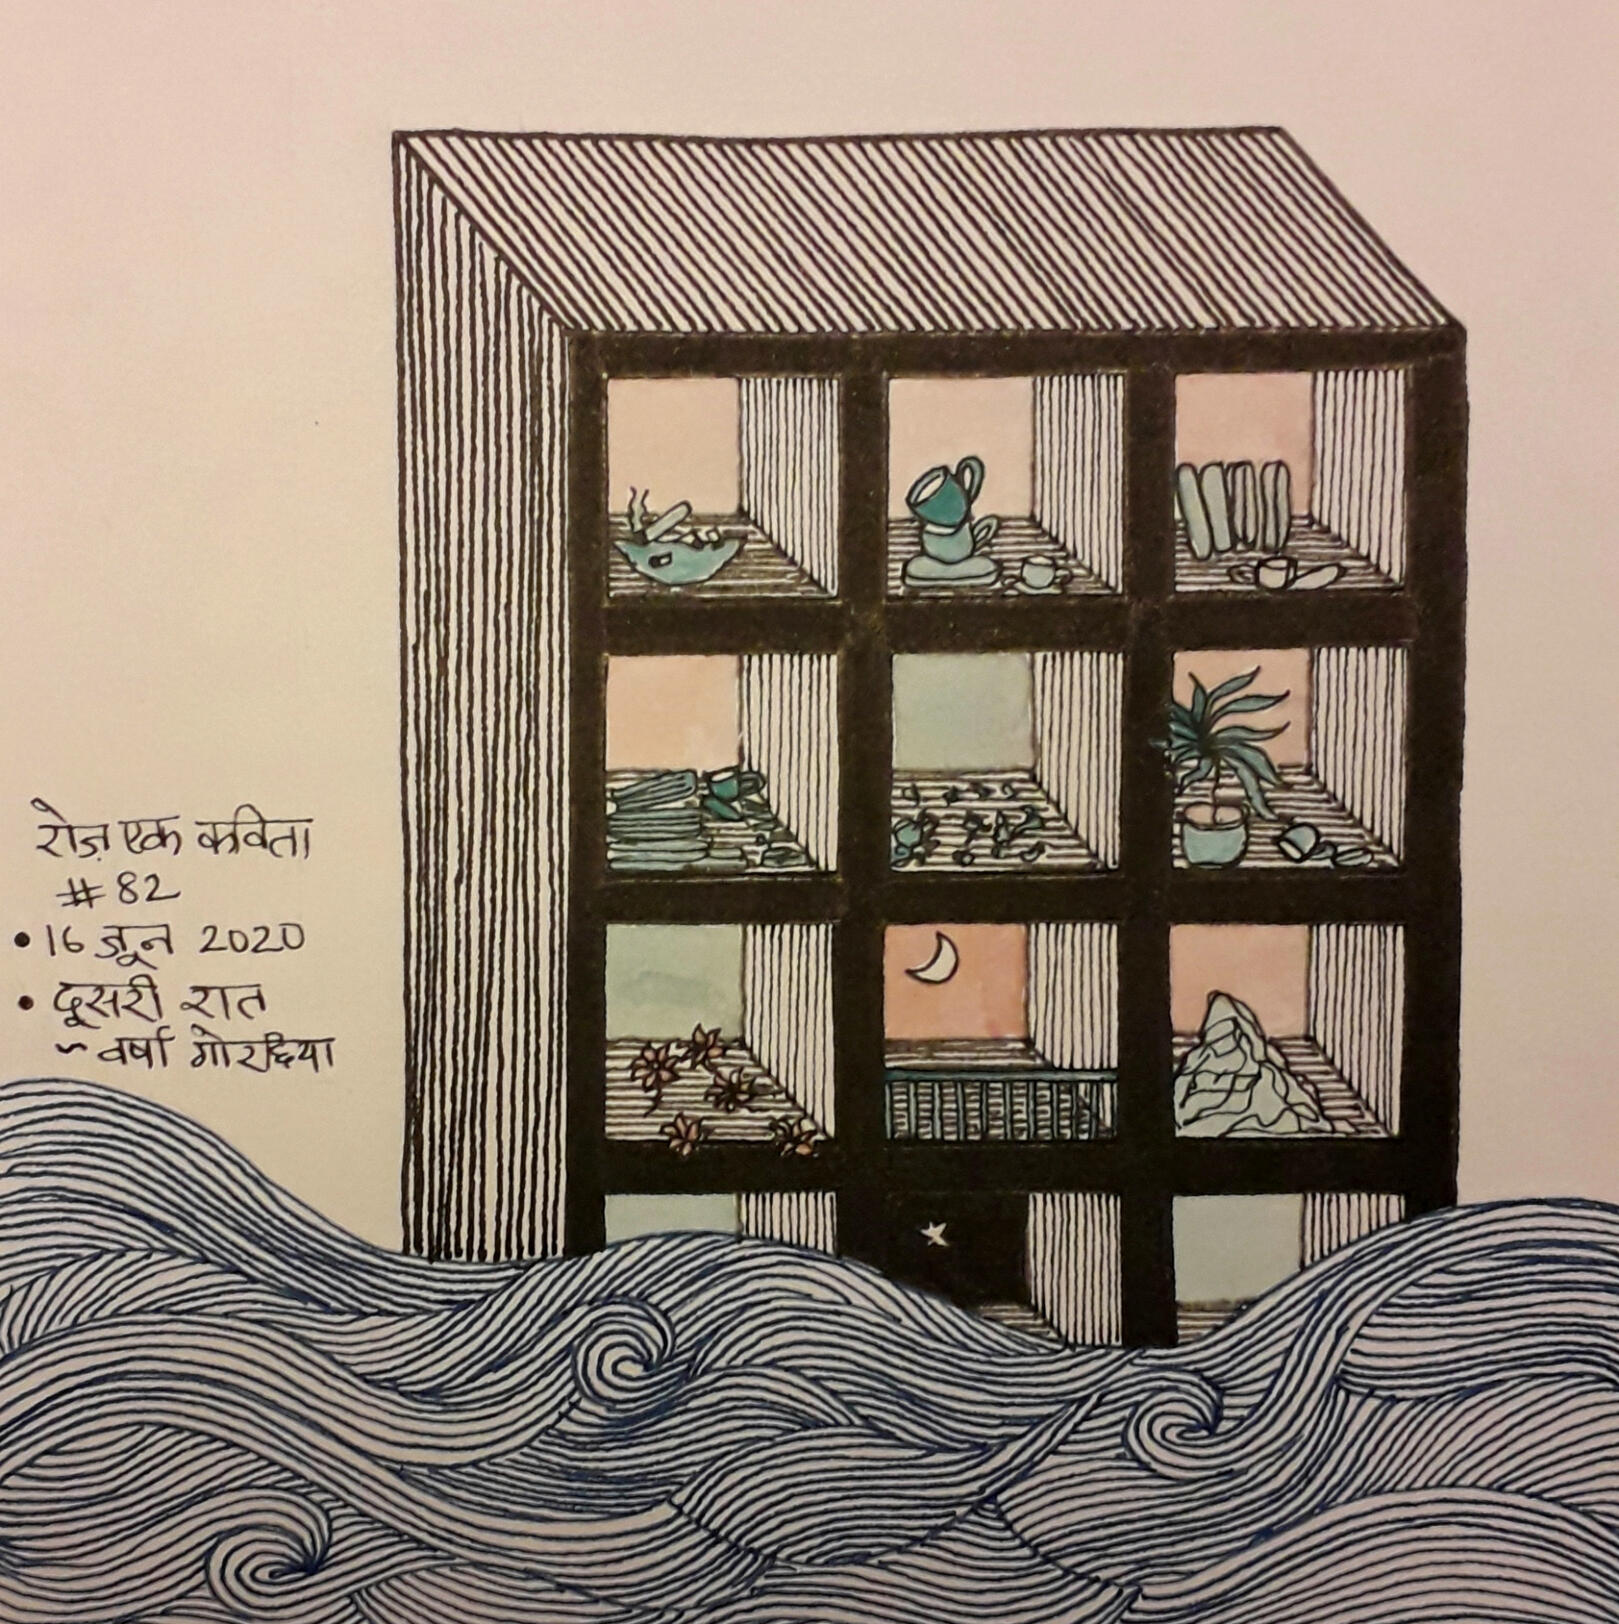 रोज़ एक कविता
#82
• 16 जून 2020
• दूसरी रात
~ वर्षा गोरछिया